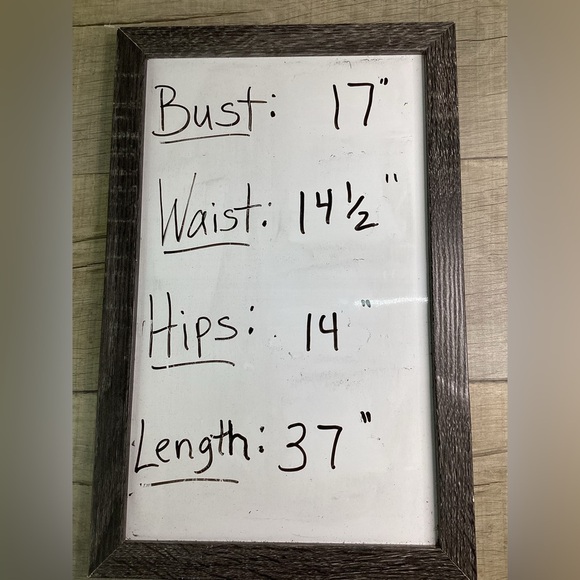 Bust: 17"
Waist: 14 1/2"
Hips: 14"
Length: 37"